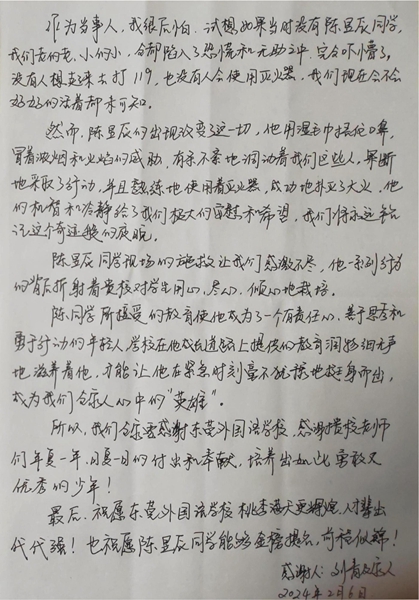 作为当事人，我很后怕。试想如果当时没有陈昱辰同学，
我们老的老、小的小，全都陷入了恐慌和无助之中，完全吓懵了，
没有人想起来去打119，也没有人会使用灭火器，我们现在会不会
好好的活着都未可知。
然而，陈昱辰的出现改变了这一切，他用湿毛巾捂住口鼻，
冒着浓烟和火焰的威胁，有条不紊地调动着我们这些人，果断
地采取了行动，并且熟练地使用着灭火器，成功地扑灭了大火。他
的机智和冷静给了我们极大的安慰和希望，我们将永远铭
记这个奇迹般的夜晚。
陈昱辰同学现场的施救让我们感激不尽，他一系列行为
的背后折射着贵校对学生用心、尽心、倾心地栽培。
陈同学所接受的教育使他成为了一个有责任心、善于思考和
勇于行动的年轻人，学校在他成长道路上提供的教育润物细无声
地滋养着他，才能让他在紧急时刻毫不犹豫地挺身而出，
成为我们全家人心中的“英雄”。
所以，我们全家要感谢东莞外国语学校，感谢贵校老师
们年复一年、日复一日的付出和奉献，培养出如此勇敢又
优秀的少年！
最后，祝愿东莞外国语学校桃李满天更辉煌，人才辈出
代代强！也祝愿陈昱辰同学能够金榜题名，前程似锦！
感谢人：刘青及家人
2024年2月6日